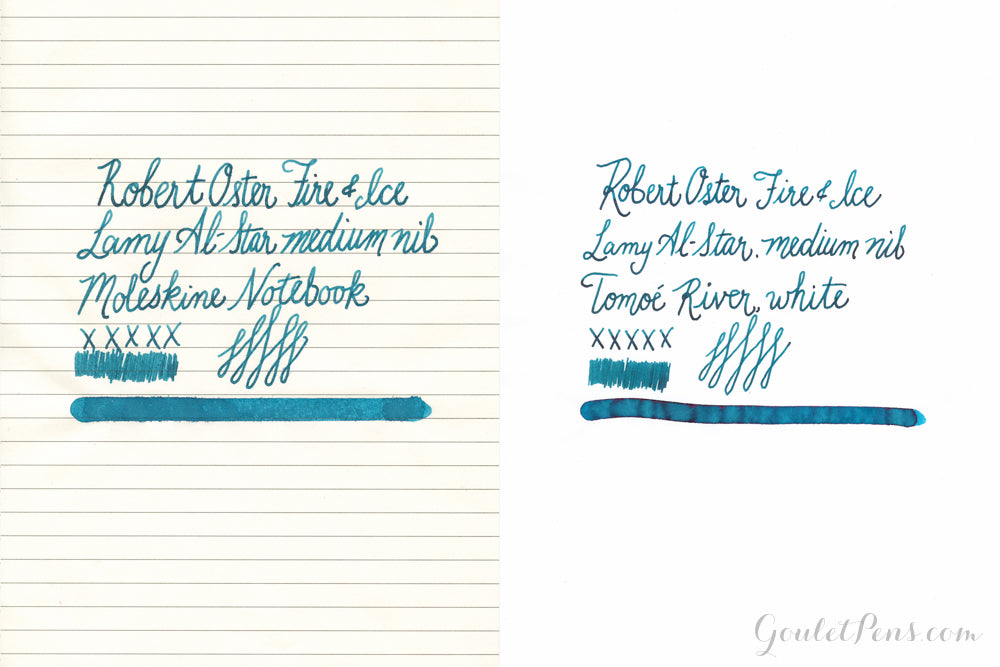 Robert Oster Fire & Ice
Lamy Al-Star medium nib
Moleskine Notebook
X X X X X
Robert Oster Fire & Ice
Lamy Al-Star, medium nib
Tomoé River, white
X X X X X
GouletPens.com